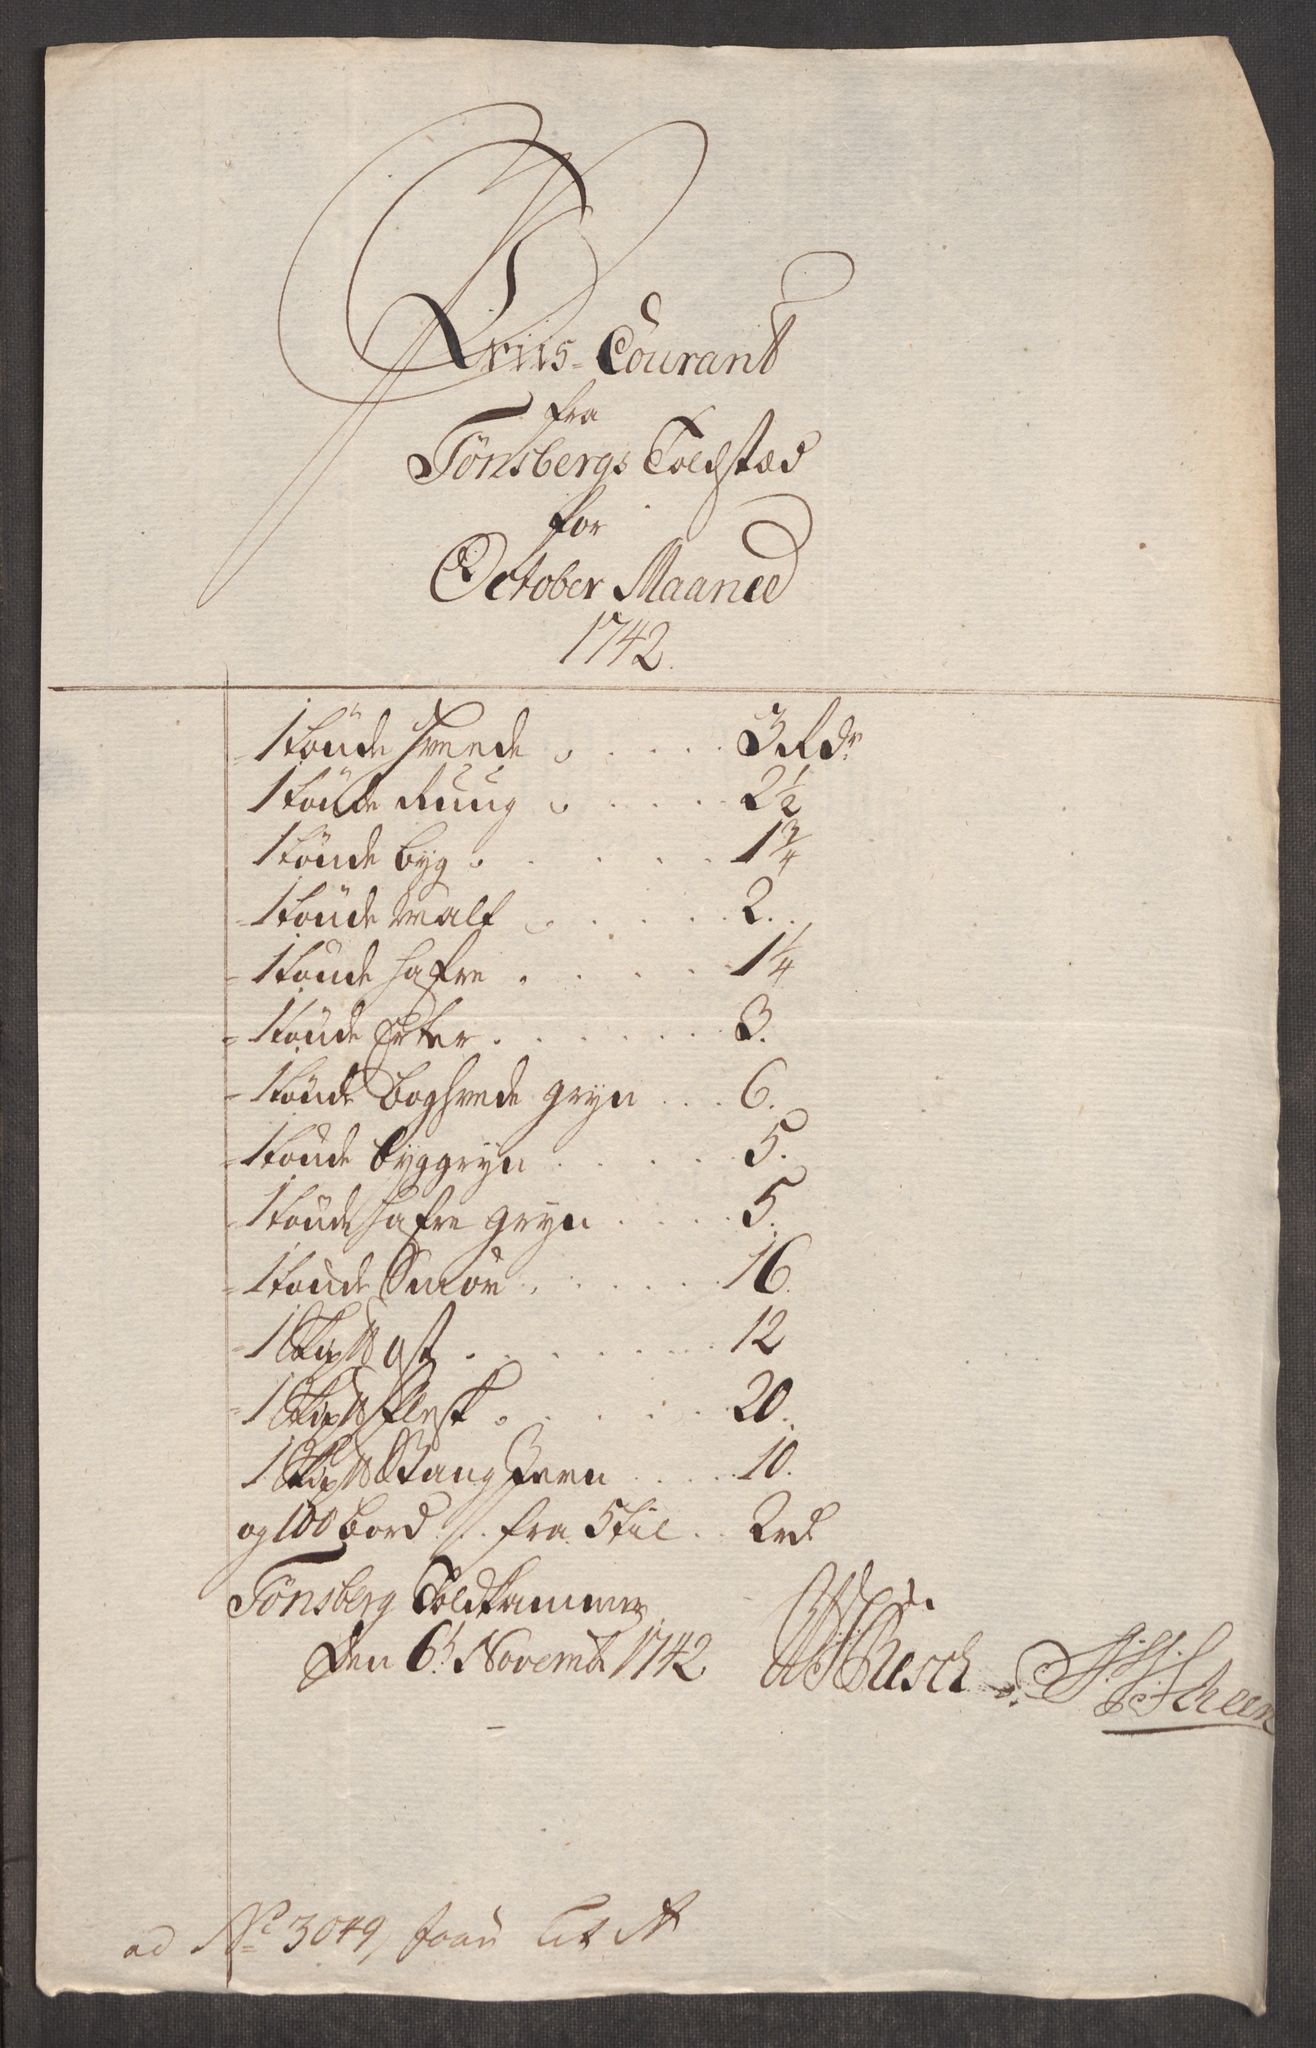 Priis-Courant
fra
Tønsbergs Toldsted
for
October Maaned
1742.
1 tønde Hvede . . . . . 3 Rdr
1 tønde Ruug . . . . . 2 1/2
1 tønde byg . . . . . . 1 3/4
1 tønde Malt . . . . . 2.
1 tønde hafre . . . . . 1 1/4
1 tønde Erter . . . . . . 3.
1 tønde boghvede gryn . . . 6.
1 tønde byggryn . . . . . 5.
1 tønde hafre gryn . . . . 5.
1 tønde Smør . . . . . . 16.
1 Skip℔ Ost . . . . . . . 12
1 Skip℔ flesk . . . . . 20.
1 Skip℔ Stang Jern . . . . 10.
og 100 bord . . fra 5 til . . 2rd
Tønsberg Toldkammer
Den 6t Novembr 1742
Büsch
Scheen
ad No 3049,